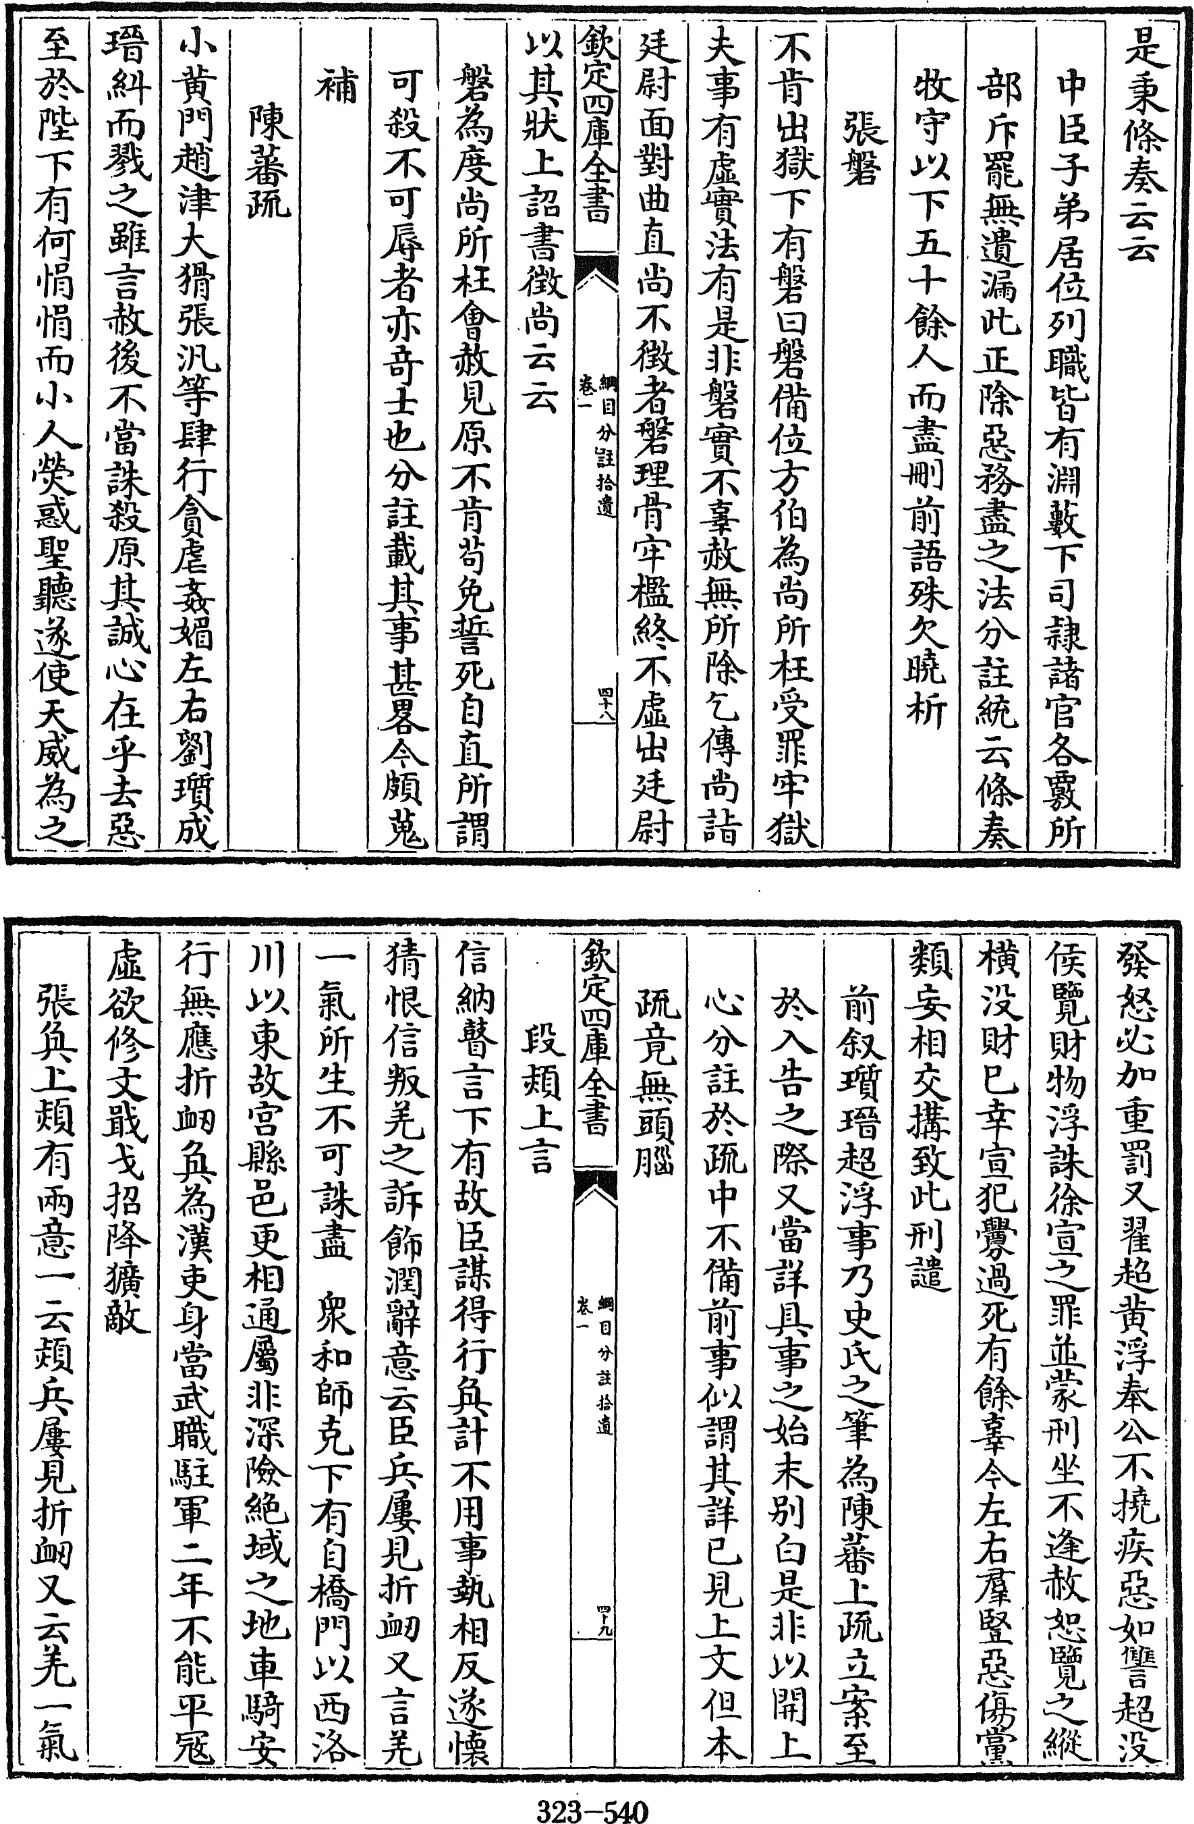 是秉條奏云云
中臣子弟居位列職皆有淵藪下司隷諸官各覈所
部斥罷無遺漏此正除惡務盡之法分註統云條奏
牧守以下五十餘人而盡刪前語殊欠曉析
張磐
不肯出獄下有磐曰磐備位方伯為尚所枉受罪牢獄
夫事有虛實法有是非磐實不辜赦無所除乞傳尚詣
廷尉面對曲直尚不徴者磐理骨牢檻終不虛出廷尉
欽定四庫全書
綱目分註拾遺
卷一
四十八
以其狀上詔書徴尚云云
磐為度尚所枉會赦見原不肯茍免誓死自直所謂
可殺不可辱者亦奇士也分註載其事甚畧今頗蒐
補
陳蕃疏
小黄門趙津大猾張汎等肆行貪虐姦媚左右劉瓆成
瑨糾而戮之雖言赦後不當誅殺原其誠心在乎去惡
至於陛下有何悁悁而小人熒惑聖聽遂使天威為之
發怒必加重罰又翟超黄浮奉公不撓疾惡如讐超没
侯覽財物浮誅徐宣之罪並蒙刑坐不逢赦恕覽之縱
横没財巳幸宣犯釁過死有餘辜今左右羣豎惡傷黨
類妄相交搆致此刑譴
前叙瓆瑨超浮事乃史氏之筆為陳蕃上疏立案至
於入告之際又當詳具事之始末别白是非以開上
心分註於疏中不備前事似謂其詳已見上文但本
疏竟無頭腦
欽定四庫全書
綱目分註拾遺
卷一
四十九
段熲上言
信納瞽言下有故臣謀得行奐計不用事埶相反遂懷
猜恨信叛羌之訴飾潤辭意云臣兵屢見折衂又言羌
一氣所生不可誅盡　衆和師克下有自橋門以西洛
川以東故宫縣邑更相通屬非深險絶域之地車騎安
行無應折衂奐為漢吏身當武職駐軍二年不能平冦
虛欲修文戢戈招降獷敵
張奐上熲有兩意一云熲兵屢見折衂又云羌一氣
323-540